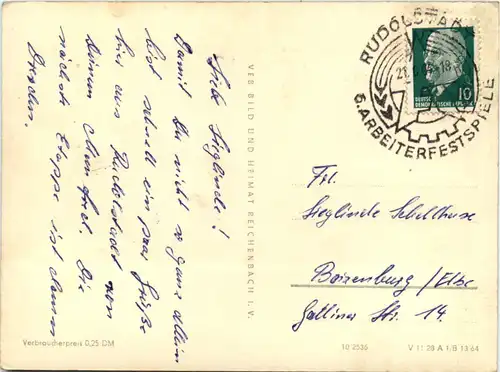 Liebe Sieglinde!
Damit Du nicht so ganz allein
bist schnell ein paar Grüße
hier aus Rudolstadt von
Deinem Manfred. Die
nächste Etappe ist dann
Dresden.
Verbraucherpreis 0,25 DM
VEB BILD UND HEIMAT REICHENBACH i. V.
RUDOLSTADT
5. ARBEITERFESTSPIELE
DEUTSCHE
DEMOKRATISCHE REPUBLIK
10
Frl.
Sieglinde
Boizenburg / Elbe
Str. 14.
10 2535
V 11 28 A 1/B 13/64